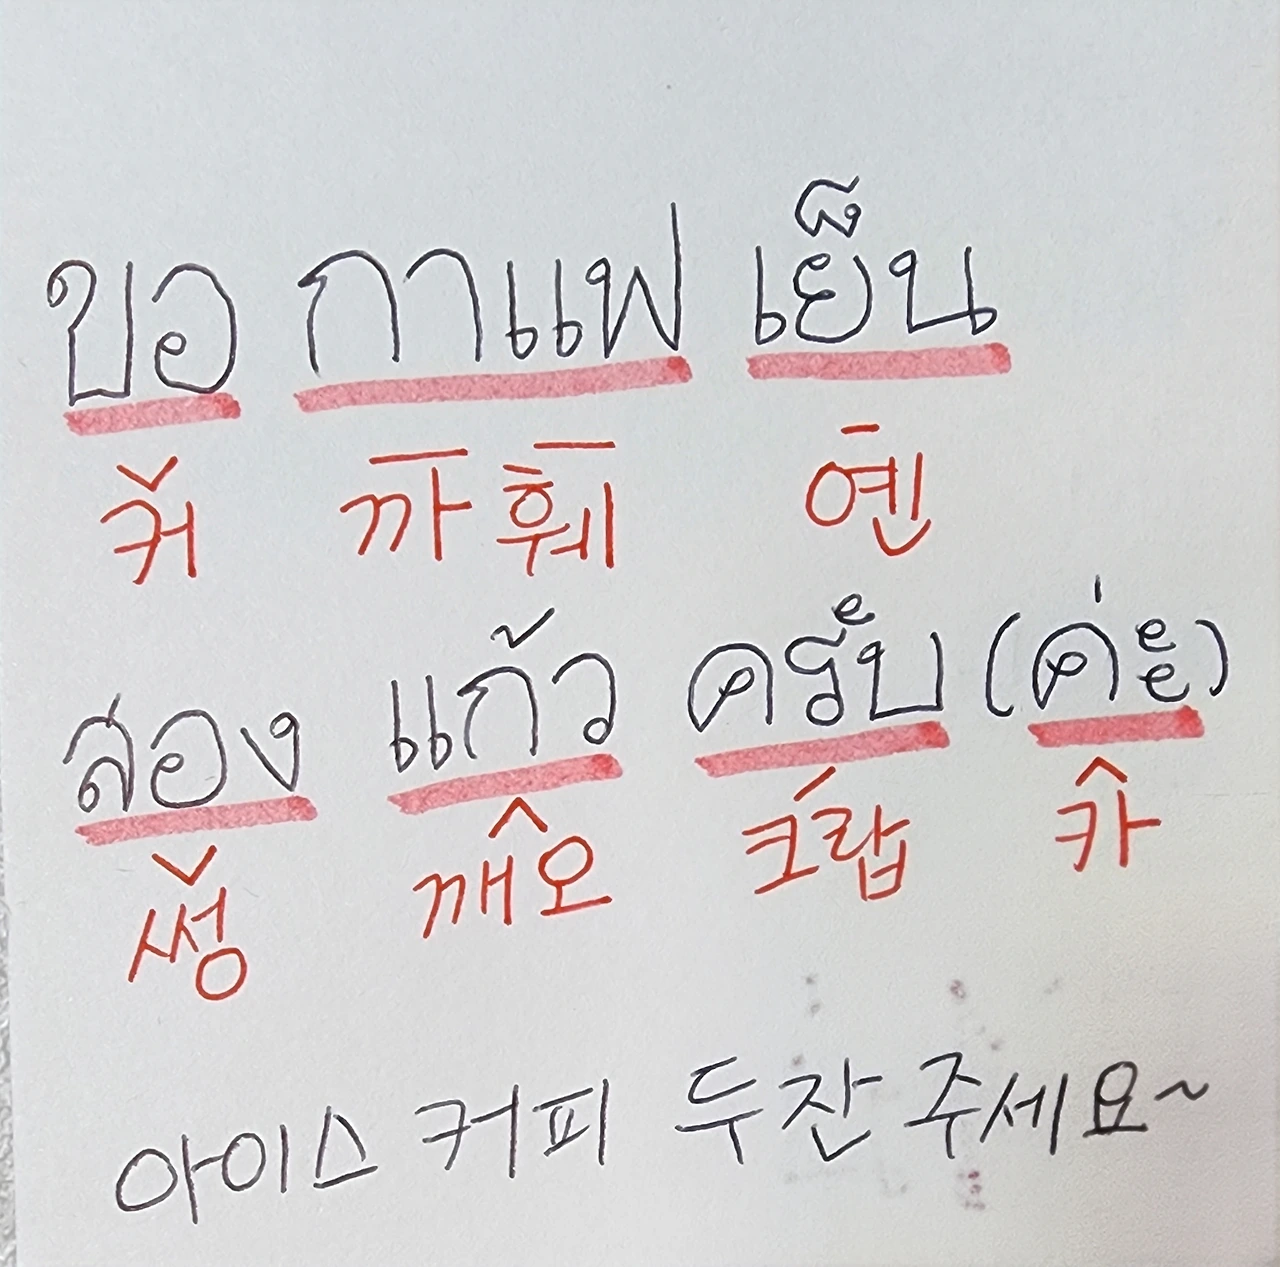 ขอ กาแฟ เย็น
커 까 훼 옌
สอง แก้ว ครับ (ค่ะ)
썽 깨오 크랍 카
아이스 커피 두잔 주세요~